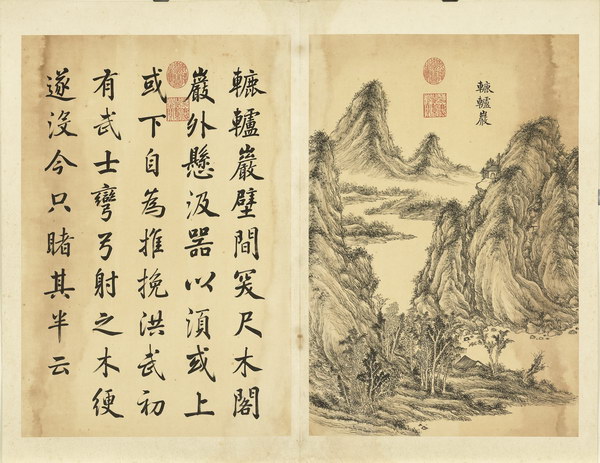 轆轤巖
轆轤巖壁間突尺木閣
巖外懸汲器以湏或上
或下自為推挽洪武初
有武士彎弓射之木便
遂没今只睹其半云